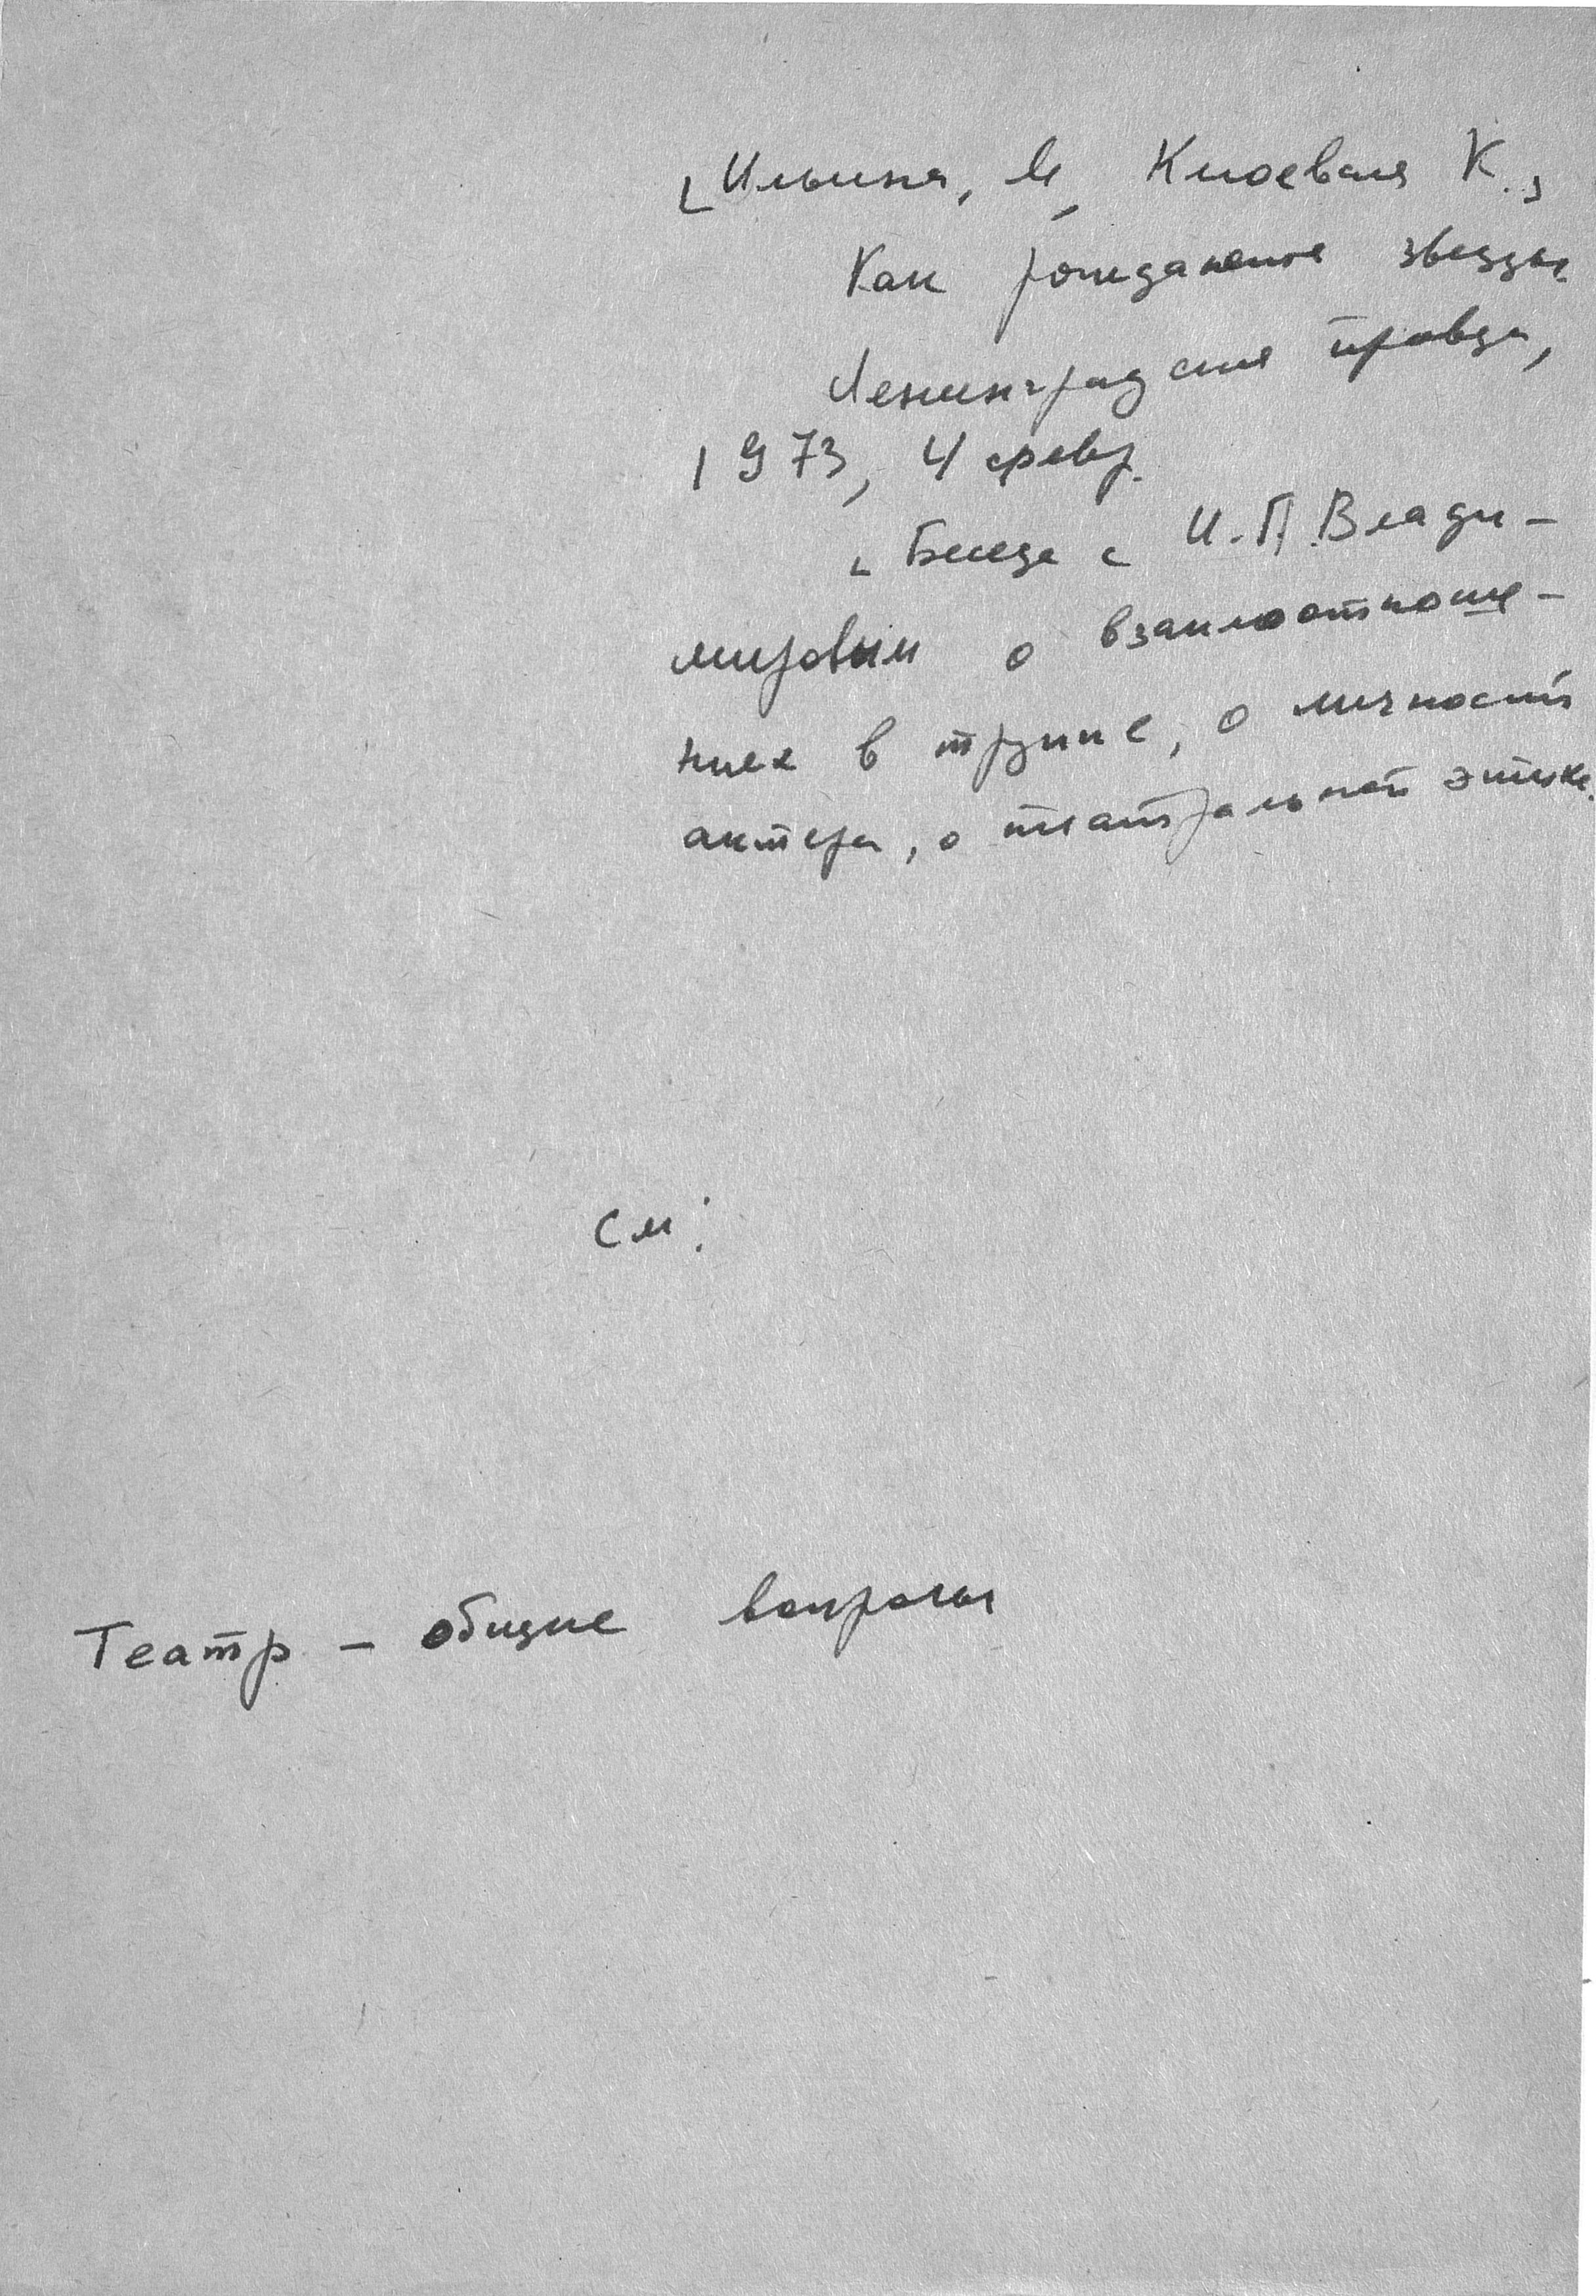 [Ильина, М, Клюевская К.]
Как рождаются звезды
Ленинградская правда,
1973, 4 февр.
[Беседа с И.П. Влади-
мировым о взаимоотноше-
ниях в труппе, о личности
актера, о театральной этике.
См:
Театр - общие вопросы